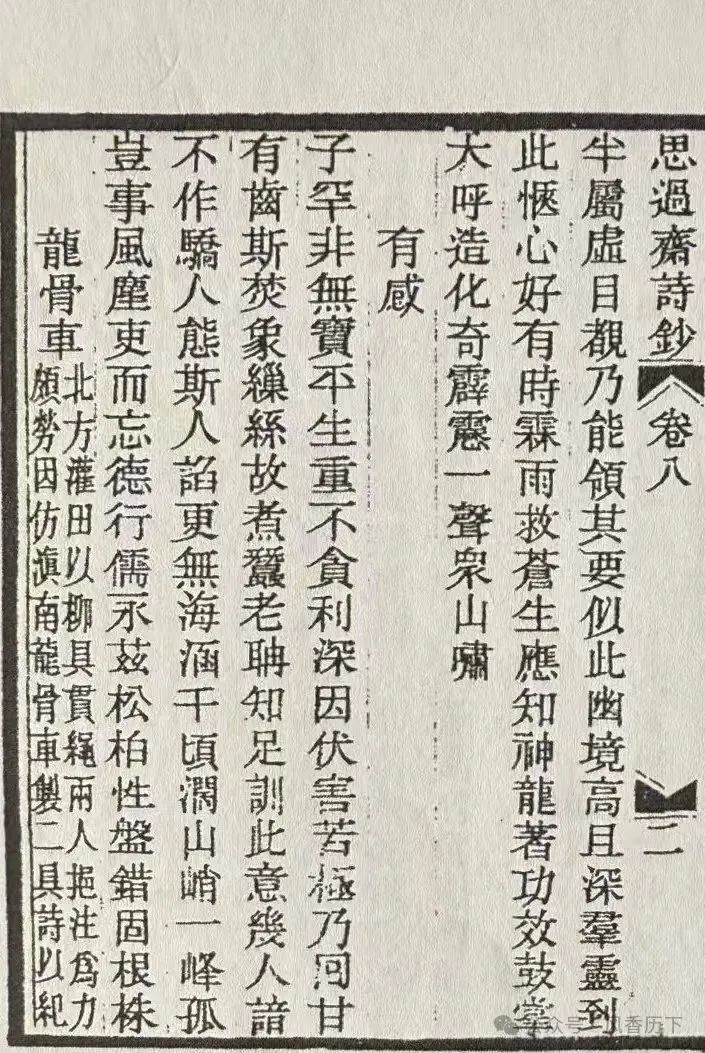 思過齋詩鈔 卷八 二
半屬虛目覩乃能領其要似此幽境高且深羣靈到
此愜心好有時霖雨救蒼生應知神龍著功效鼓掌
大呼造化奇霹靂一聲衆山嘯
有感
子罕非無寶平生重不貪利深因伏害苦極乃回甘
有齒斯焚象繅絲故煮蠶老聃知足訓此意幾人諳
不作驕人態斯人諂更無海涵千頃濶山峭一峰孤
豈事風塵吏而忘德行儒永茲松柏性盤錯固根株
龍骨車
北方灌田以柳具貫繩兩人挹注爲力
頗勞因仿滇南龍骨車製二具詩以紀
公众号 香历下